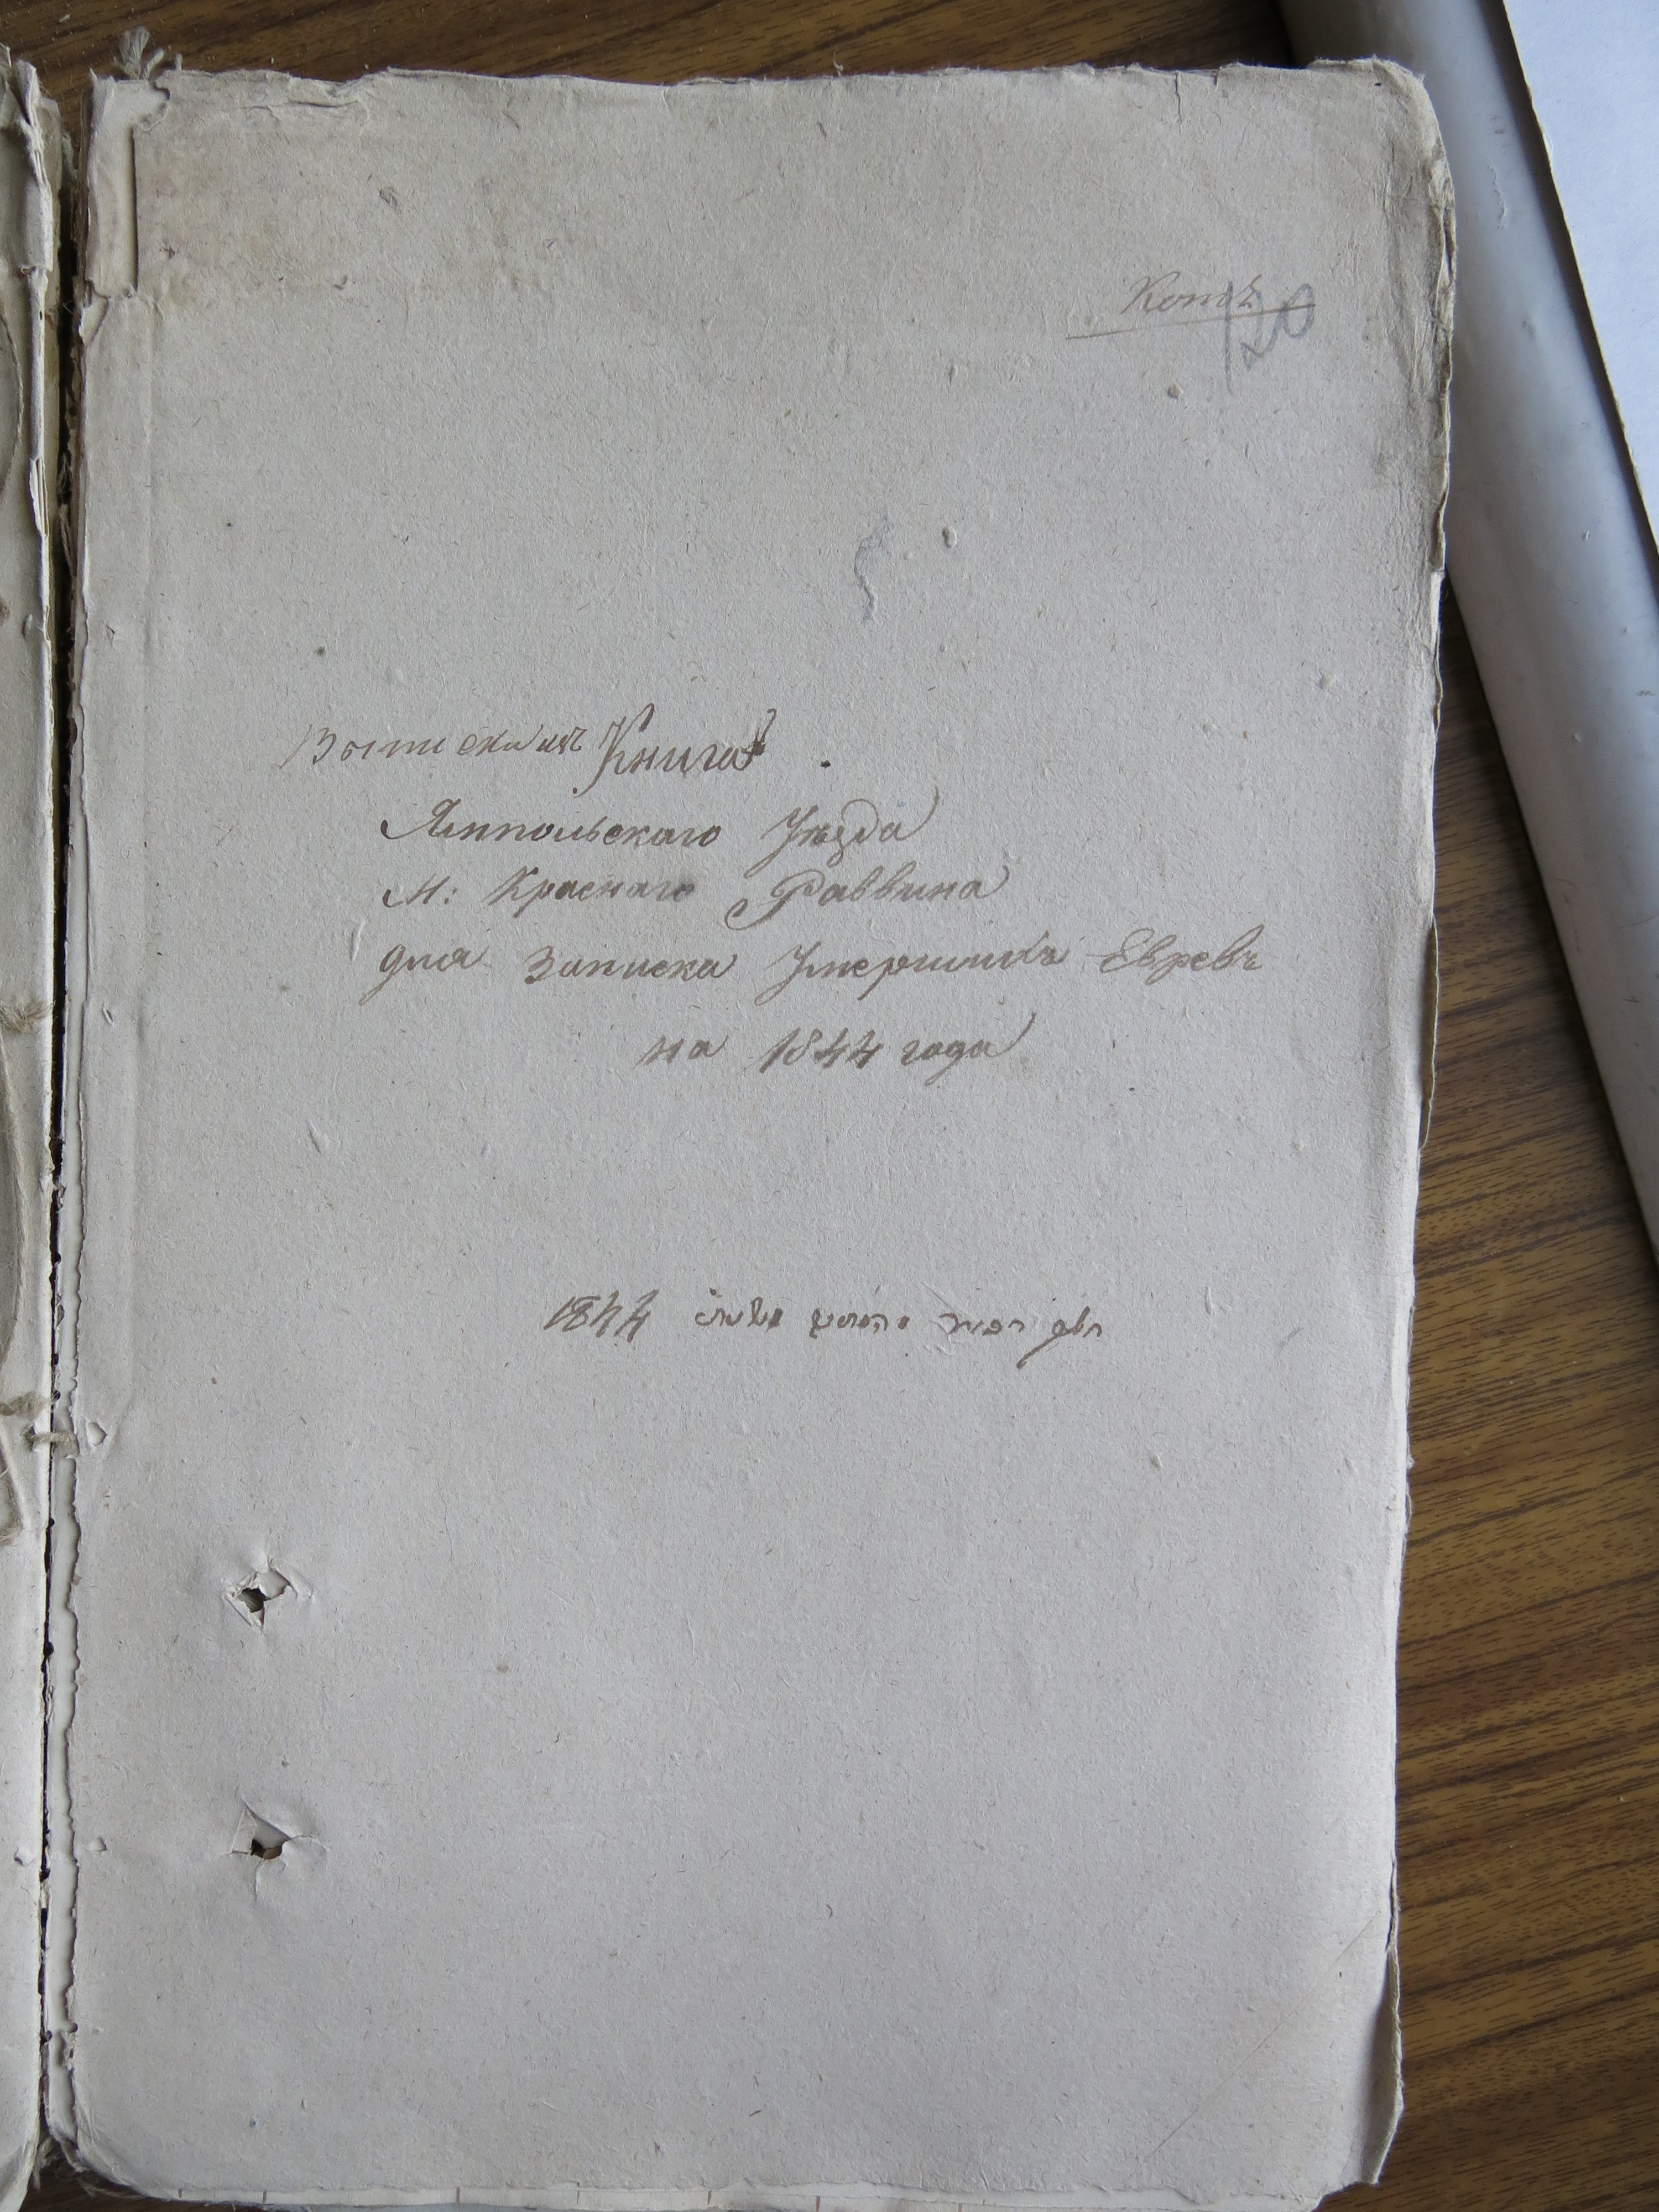 120
Выписки изъ Книга
Ямпольскаго Уѣзда
М: Краснаго Раввина
для Записка Умершихъ Евревъ
на 1844 года
1844